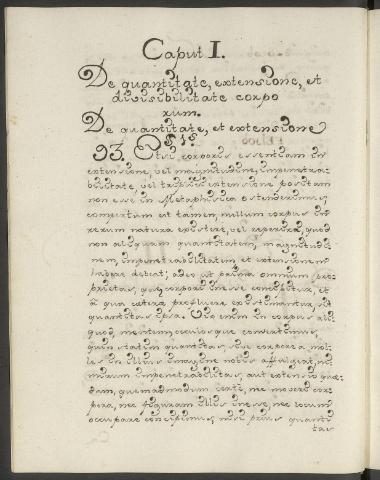 Caput I.
De quantitate, extensione, et
divisibilitate corpo
rum.
De quantitate, et extensione
§ 1º
93. Etsi corporis essentiam in
extensione, vel magnitudine, impenetra-
bilitate, vel triplici extensione positam
non esse in Metaphisica ostenderimus,
compertum est tamen, nullum corpus in
rerum natura existere, vel reperiri, quod
non aliquam quantitatem, magnitudi
nem, impenetrabilitatem, et extensionem
habere debeat; adeo ut prima omnium pro-
prietas, quæ corpori inesse concipitur, et
a qua cætera profluere existimantur, sit
quantitas ipsa. Ubi enim in corpus ali-
quod, mentem, oculosque convertimus,
quin statim quantitas, sive corporea mo-
les in illius imagine nobis affulgeat, ni-
mirum impenetrabilitas, aut extensio quæ-
dam, quemadmodum certè, nec moveri cor-
pora, nec figuram illis inesse, nec locum
occupare concipimus, nisi prius quanti
tas